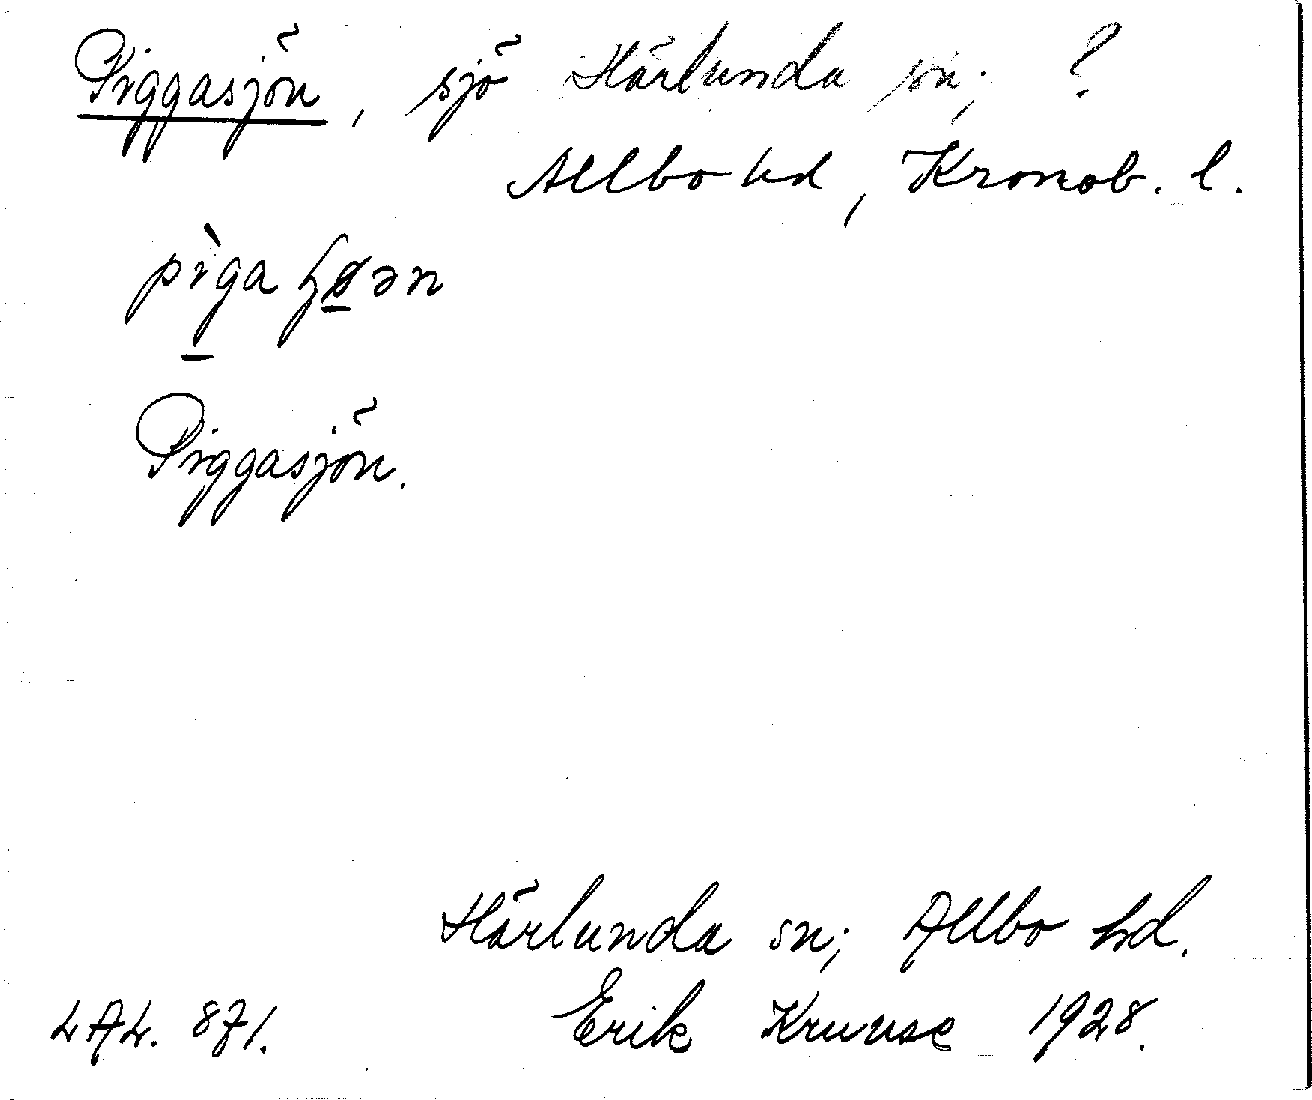 Piggasjön, sjö Härlunda sn; ?
Allbo hd, Kronob. l.
pìga ɧøən
Piggasjön.
Härlunda sn; Allbo hd.
LAL. 871. Erik Kruuse 1928.